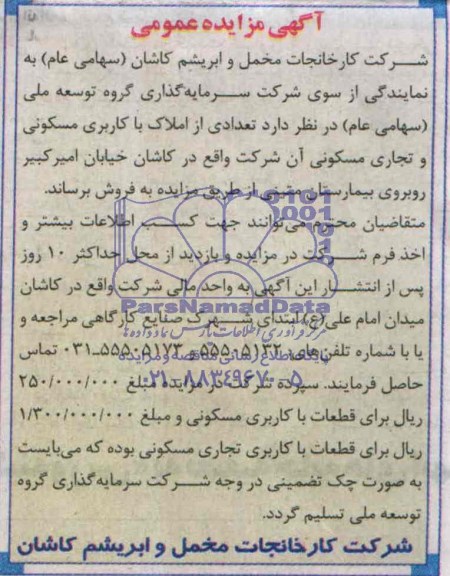 آگهی مزایده عمومی
شرکت کارخانجات مخمل و ابریشم کاشان (سهامی عام) به
نمایندگی از سوی شرکت سرمایه‌گذاری گروه توسعه ملی
(سهامی عام) در نظر دارد تعدادی از املاک با کاربری مسکونی
و تجاری مسکونی آن شرکت واقع در کاشان خیابان امیرکبیر
روبروی بیمارستان متینی از طریق مزایده به فروش برساند.
متقاضیان محترم می‌توانند جهت کسب اطلاعات بیشتر و
اخذ فرم شرکت در مزایده و بازدید از محل حداکثر ۱۰ روز
پس از انتشار این آگهی به واحد مالی شرکت واقع در کاشان
ParsNamadData
میدان امام علی(ع) ابتدای شهرک صنایع کارگاهی مراجعه و
یا با شماره تلفن‌های ۵۵۵۰۵۱۳۲ و ۵۵۵۰۵۱۲۳-۰۳۱ تماس
۰۲۱-۸۸۳۴۹۶۷۰-۵
حاصل فرمایند. سپرده شرکت در مزایده مبلغ ۲۵۰/۰۰۰/۰۰۰
ریال برای قطعات با کاربری مسکونی و مبلغ ۱/۳۰۰/۰۰۰/۰۰۰
ریال برای قطعات با کاربری تجاری مسکونی بوده که می‌بایست
به صورت چک تضمینی در وجه شرکت سرمایه‌گذاری گروه
توسعه ملی تسلیم گردد.
شرکت کارخانجات مخمل و ابریشم کاشان